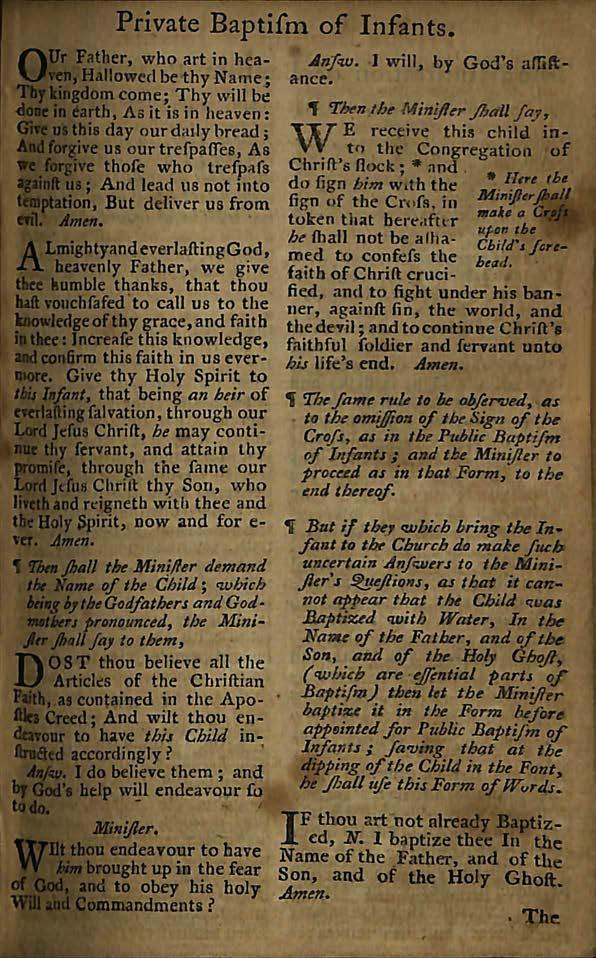 Private Baptiſm of Infants.
OUr Father, who art in hea-
ven, Hallowed be thy Name;
Thy kingdom come; Thy will be
done in earth, As it is in heaven:
Give us this day our daily bread;
And forgive us our treſpaſſes, As
we forgive thoſe who treſpaſs
againſt us; And lead us not into
temptation, But deliver us from
evil. Amen.
ALmighty and everlaſting God,
heavenly Father, we give
thee humble thanks, that thou
haſt vouchſafed to call us to the
knowledge of thy grace, and faith
in thee: Increaſe this knowledge,
and confirm this faith in us ever-
more. Give thy Holy Spirit to
this Infant, that being an heir of
everlaſting ſalvation, through our
Lord Jeſus Chriſt, he may conti-
nue thy ſervant, and attain thy
promiſe, through the ſame our
Lord Jeſus Chriſt thy Son, who
liveth and reigneth with thee and
the Holy Spirit, now and for e-
ver. Amen.
¶ Then ſhall the Miniſter demand
the Name of the Child; which
being by the Godfathers and God-
mothers pronounced, the Mini-
ſter ſhall ſay to them,
DOST thou believe all the
Articles of the Chriſtian
Faith, as contained in the Apo-
ſtles Creed; And wilt thou en-
deavour to have this Child in-
ſtructed accordingly?
Anſw. I do believe them; and
by God's help will endeavour ſo
to do.
Miniſter.
WIlt thou endeavour to have
him brought up in the fear
of God, and to obey his holy
Will and Commandments?
Anſw. I will, by God's aſſiſt-
ance.
¶ Then the Miniſter ſhall ſay,
WE receive this child in-
to the Congregation of
Chriſt's flock; * and
do ſign him with the
ſign of the Croſs, in
token that hereafter
he ſhall not be aſha-
med to confeſs the
faith of Chriſt cruci-
* Here the
Miniſter ſhall
make a Croſs
upon the
Child's fore-
head.
fied, and to fight under his ban-
ner, againſt ſin, the world, and
the devil; and to continue Chriſt's
faithful ſoldier and ſervant unto
his life's end. Amen.
¶ The ſame rule to be obſerved, as
to the omiſſion of the Sign of the
Croſs, as in the Public Baptiſm
of Infants; and the Miniſter to
proceed as in that Form, to the
end thereof.
¶ But if they which bring the In-
fant to the Church do make ſuch
uncertain Anſwers to the Mini-
ſter's Queſtions, as that it can-
not appear that the Child was
Baptized with Water, In the
Name of the Father, and of the
Son, and of the Holy Ghoſt,
(which are eſſential parts of
Baptiſm) then let the Miniſter
baptize it in the Form before
appointed for Public Baptiſm of
Infants; ſaving that at the
dipping of the Child in the Font,
he ſhall uſe this Form of Words.
IF thou art not already Baptiz-
ed, N. I baptize thee In the
Name of the Father, and of the
Son, and of the Holy Ghoſt.
Amen.
The